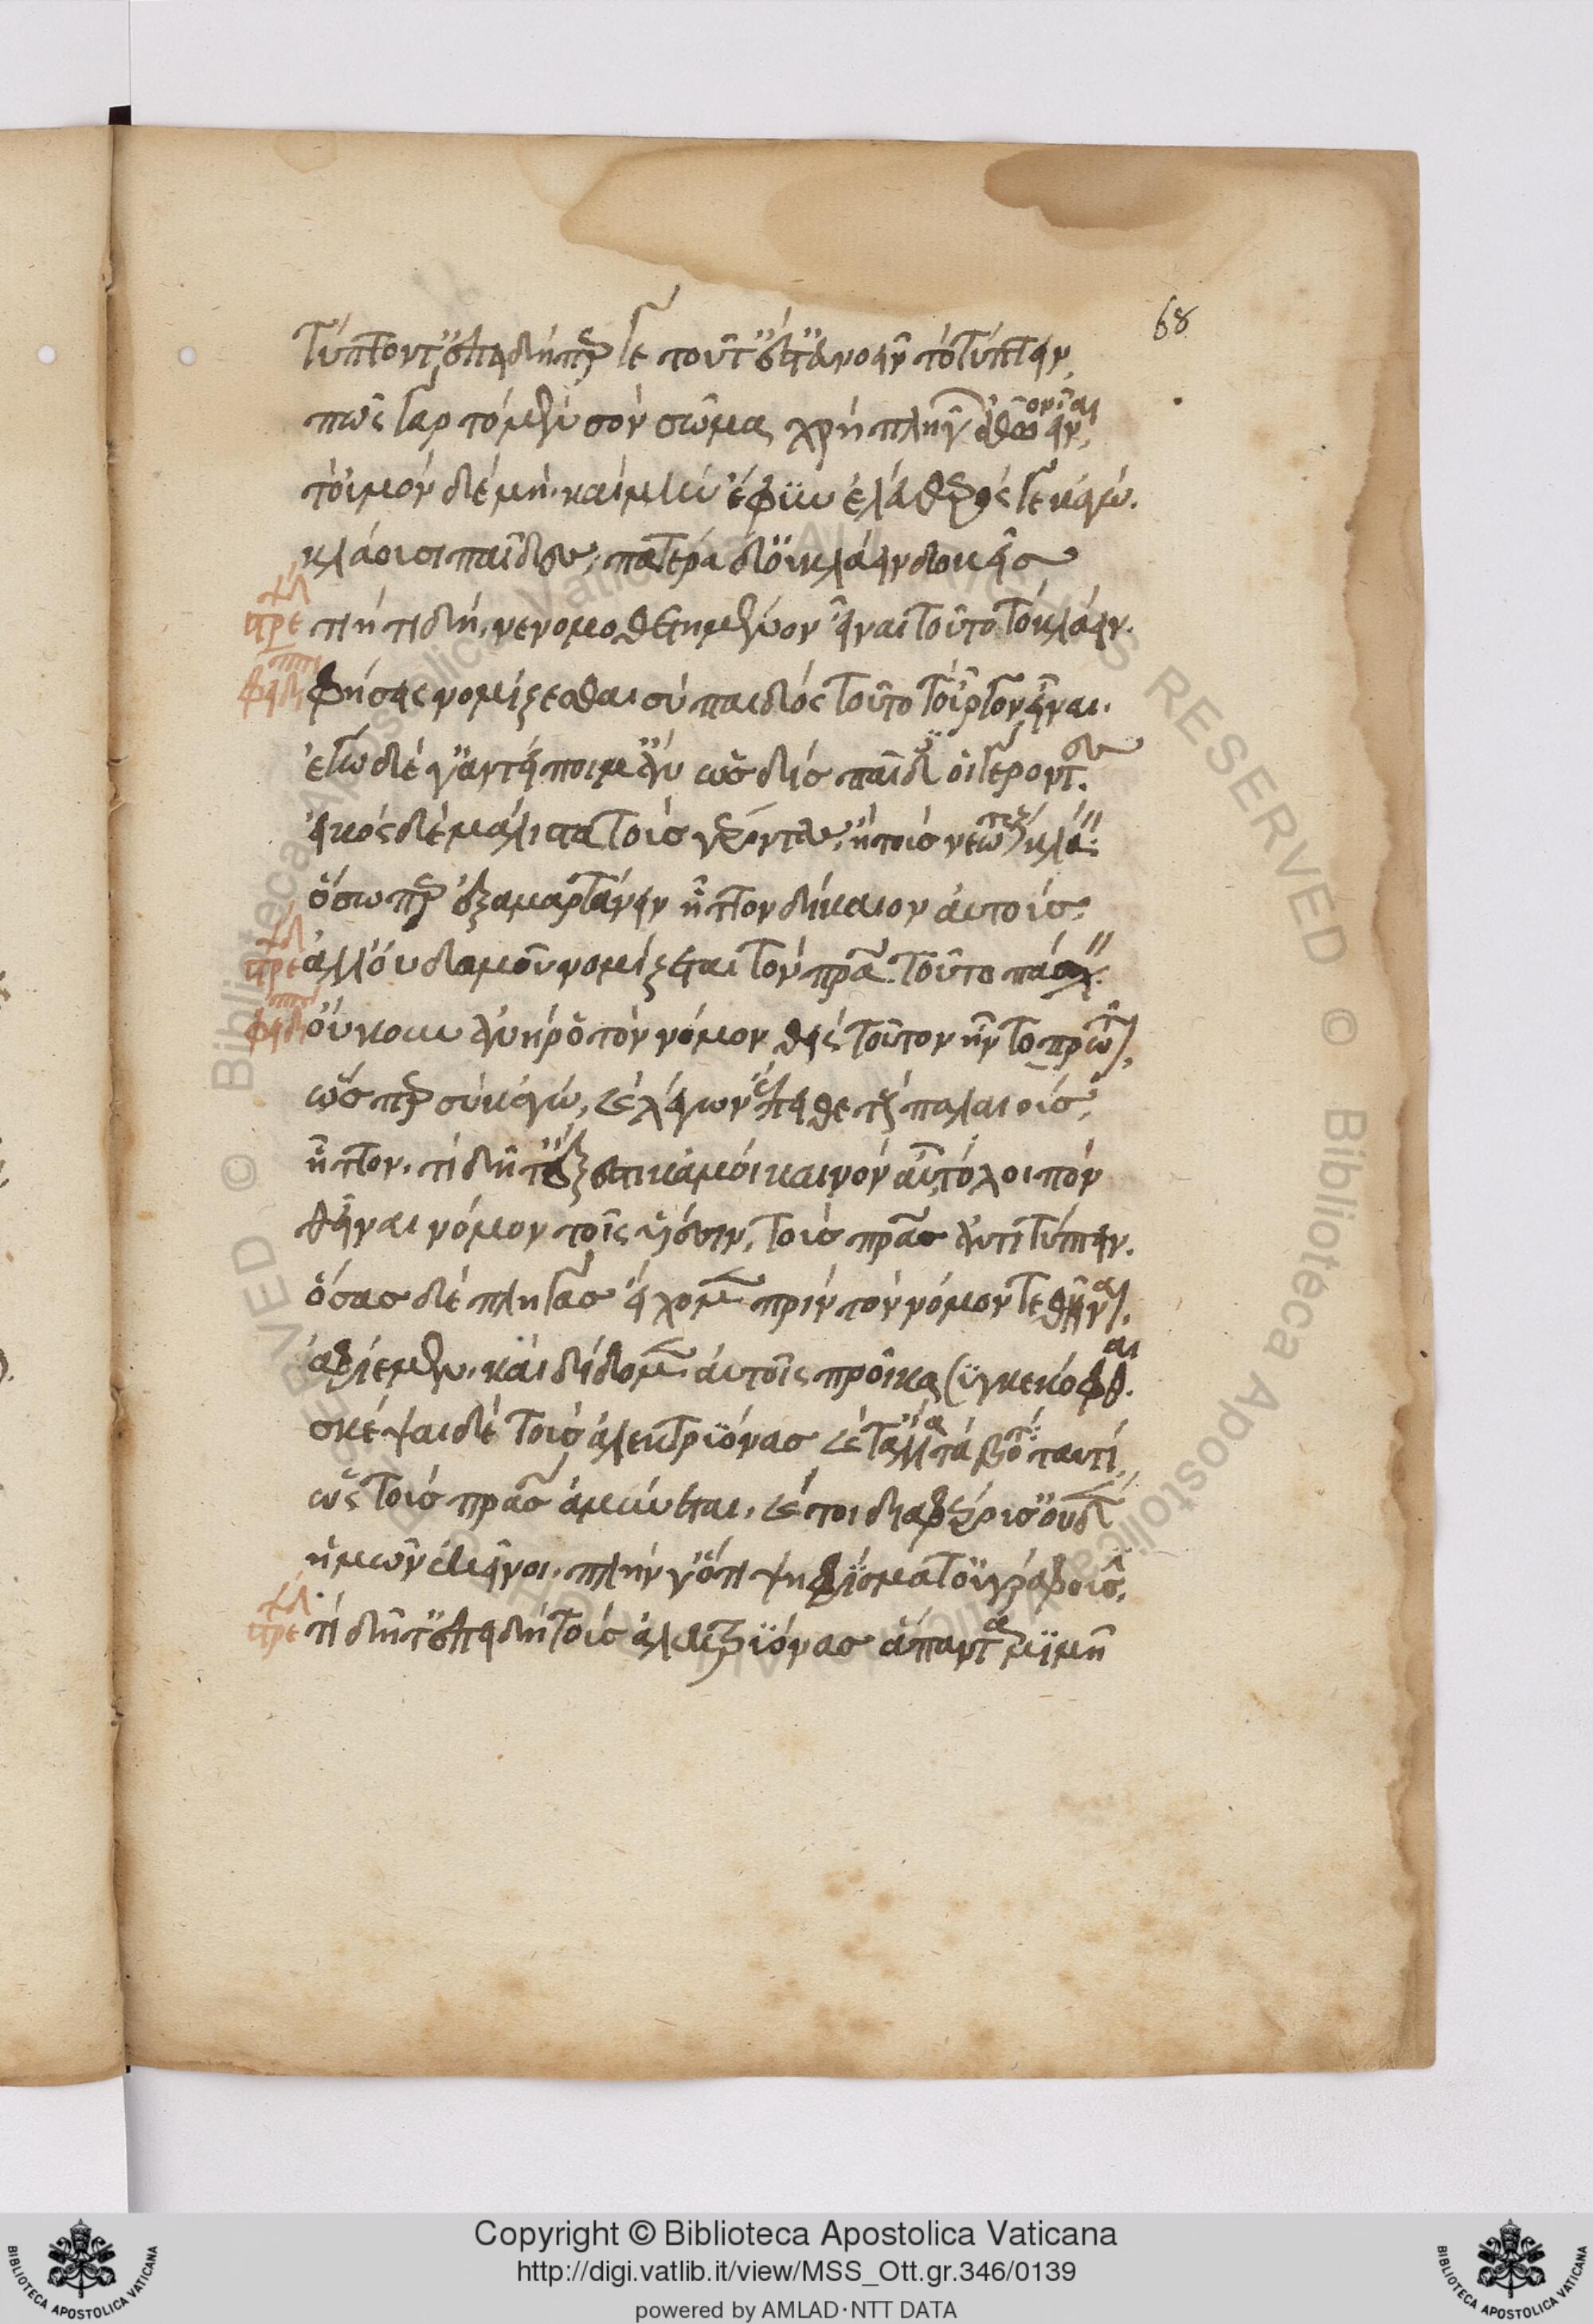 68
τύπτοντ' ἐπειδήπερ γε τοῦτ' ἔστ' εὐνοεῖν τὸ τύπτειν,
πῶς γὰρ τὸ μὲν σὸν σῶμα χρὴ πληγῶν ἀθῷον εἶναι,
τοὐμὸν δὲ μή. καὶ μὴν ἔφυν ἐλεύθερός γε κἀγώ.
κλάουσι παῖδες, πατέρα δ' οὐ κλάειν δοκεῖς
τιή τι δή, νενομοθετημένον εἶναι τοῦτο τὸ κλάειν.
φήσεις νομίζεσθαι σὺ παιδὸς τοῦτο τοὖργον εἶναι.
ἐγὼ δέ γ' ἀντείποιμ' ἂν ὡς δὶς παῖδες οἱ γέροντες.
εἰκὸς δὲ μᾶλλον τοὺς γέροντας, ἢ τοὺς νεωτέρους κλάειν
ὅσωπερ ἐξαμαρτάνειν ἧττον δίκαιον αὐτούς.
ἀλλ' οὐδαμοῦ νομίζεται τὸν πατέρα τοῦτο πάσχειν.
οὔκουν ἀνὴρ ὁ τὸν νόμον θεὶς τοῦτον ἦν τὸ πρῶτον,
ὥσπερ σὺ κἀγώ, καὶ λέγων ἔπειθε τοὺς παλαιούς,
ἧττον. τί δῆτ' ἔξεστι κἀμοὶ καινὸν αὖ τὸ λοιπὸν
θεῖναι νόμον τοῖς υἱέσιν, τοὺς πατέρας ἀντιτύπτειν.
ὅσας δὲ πληγὰς εἴχομεν πρὶν τὸν νόμον τεθῆναι.
ἀφίεμεν. καὶ δίδομεν αὐτοῖς προῖκα συγκεκόφθαι.
σκέψαι δὲ τοὺς ἀλεκτρυόνας καὶ τἄλλα τὰ βοτὰ ταυτί,
ὡς τοὺς πατέρας ἀμύνεται. καί τοι διαφέρουσιν οὐδὲν
ἡμῶν ἐκεῖνοι. πλὴν γ' ὅτι ψηφίσματ' οὐ γράφουσι.
τί δῆτ' ἐπειδὴ τοὺς ἀλεκτρυόνας ἅπαντα μιμῇ
Copyright © Biblioteca Apostolica Vaticana
http://digi.vatlib.it/view/MSS_Ott.gr.346/0139
powered by AMLAD·NTT DATA